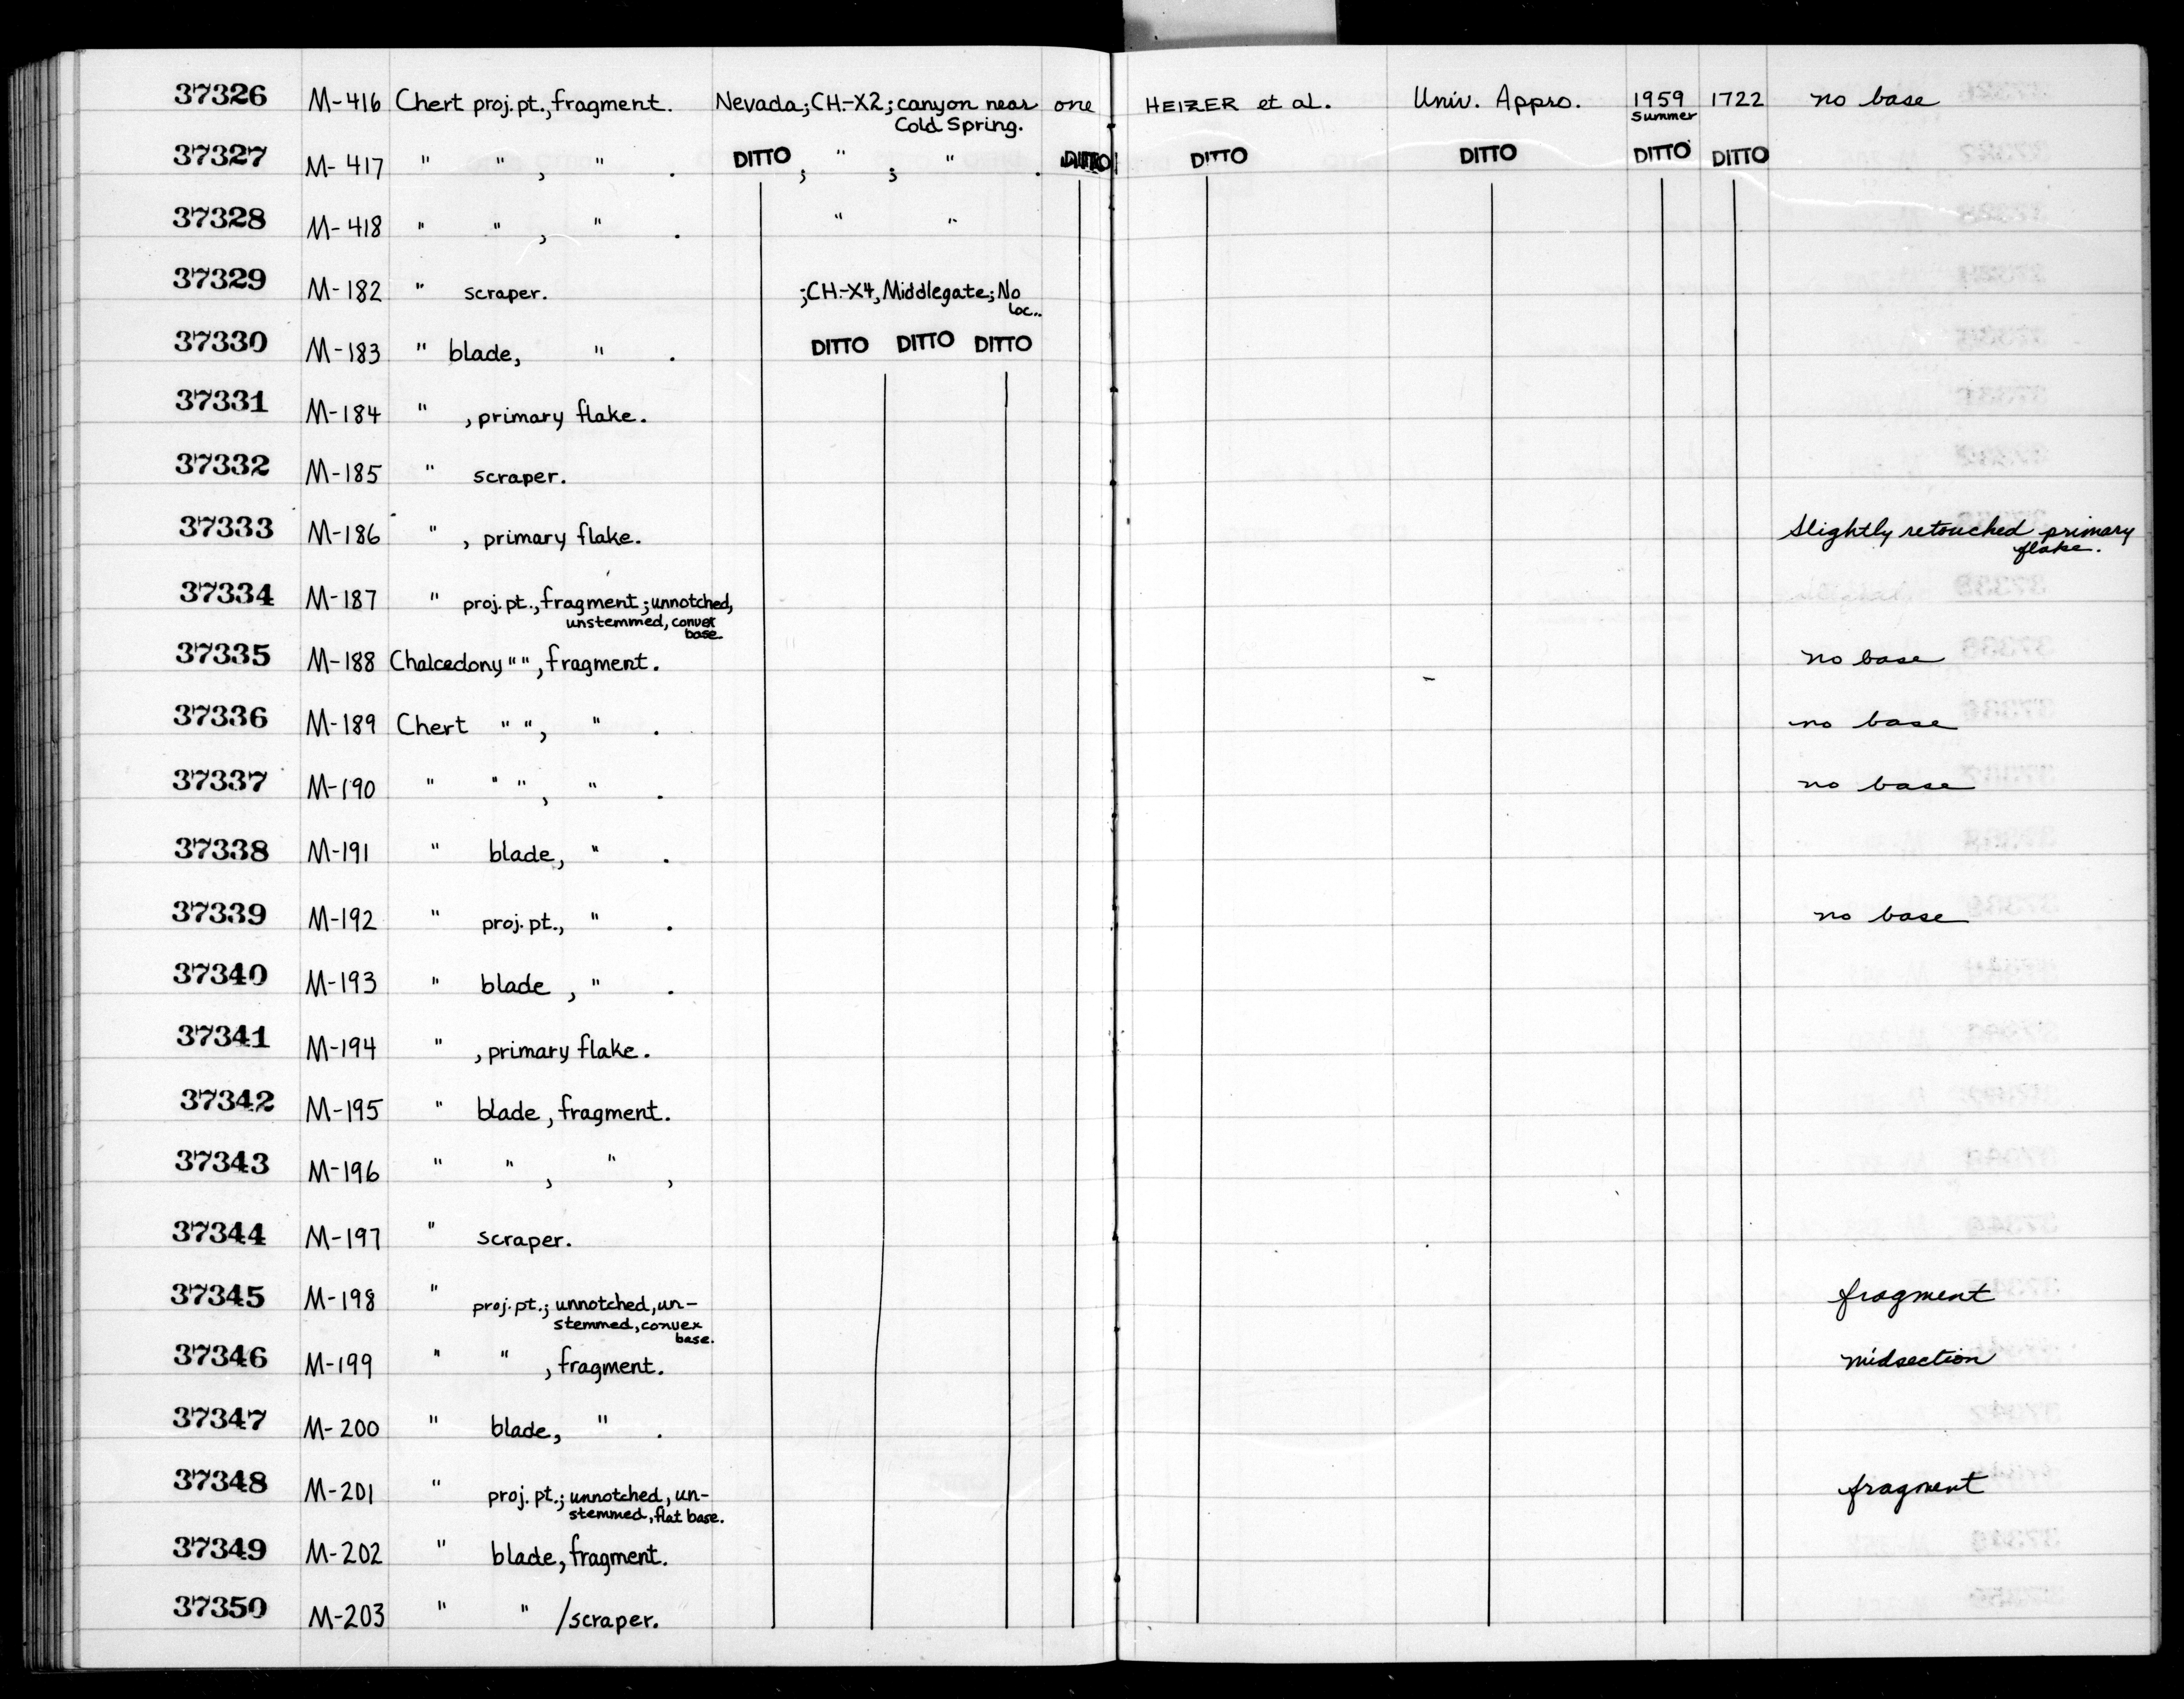 37326 M-416 Chert proj. pt., fragment. Nevada; CH-X2; canyon near one HEIZER et al. Univ. Appro. 1959 1722 no base
Cold Spring. Summer
37327 M-417 " " , " . DITTO ; " ; " . DITTO DITTO DITTO DITTO
37328 M-418 " " , " . " "
37329 M-182 " scraper. ; CH-X4, Middlegate; No
loc..
37330 M-183 " blade, " . DITTO DITTO DITTO
37331 M-184 " , primary flake.
37332 M-185 " scraper.
37333 M-186 " , primary flake. Slightly retouched primary
flake.
37334 M-187 " proj. pt., fragment; unnotched,
unstemmed, convex
base.
37335 M-188 Chalcedony " " , fragment. no base
37336 M-189 Chert " " , " . no base
37337 M-190 " " " , " . no base
37338 M-191 " blade, " .
37339 M-192 " proj. pt., " . no base
37340 M-193 " blade , " .
37341 M-194 " , primary flake.
37342 M-195 " blade, fragment.
37343 M-196 " " , " ,
37344 M-197 " scraper.
37345 M-198 " proj. pt.; unnotched, un- fragment
stemmed, convex
base.
37346 M-199 " " , fragment. midsection
37347 M-200 " blade, " .
37348 M-201 " proj. pt.; unnotched, un- fragment
stemmed, flat base.
37349 M-202 " blade, fragment.
37350 M-203 " " /scraper.